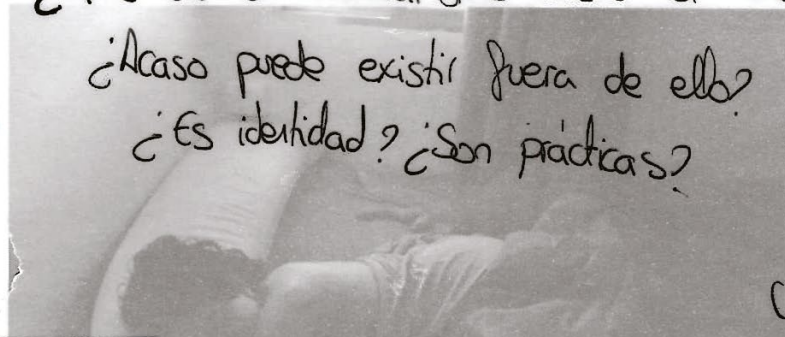 ¿Acaso puede existir fuera de ello?
¿Es identidad? ¿Son prácticas?